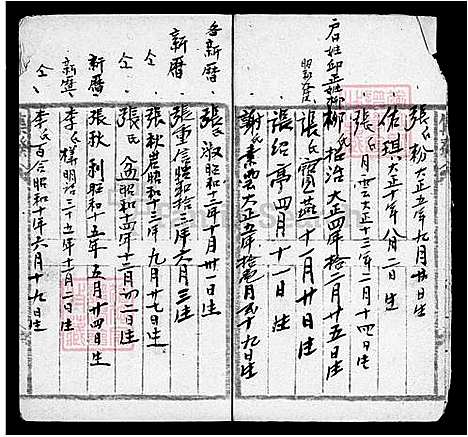 張氏粉大正五年九月廿日生
佑珥大正十年八月二日生
張氏月雲大正十三年二月十四日生
君姓邱正姓柳
柳氏招治大正四年拾二月廿五日生
張氏寶燕十一月廿日生
張紹亭四月十一日生
謝氏素雲大正五年拾壱月弐十九日生
各新曆
張氏淑昭和三年十月廿一日生
新曆
張重信昭和拾三年六月三生
仝
張秋岸昭和十一年九月廿七日生
仝
張氏盆昭和十四年十二月四二日生
新曆
張秋利昭和十五年五月廿四日生
新舊
李氏樣明治三十五年十一月二日生
仝
李氏百合昭和十年六月十九日生